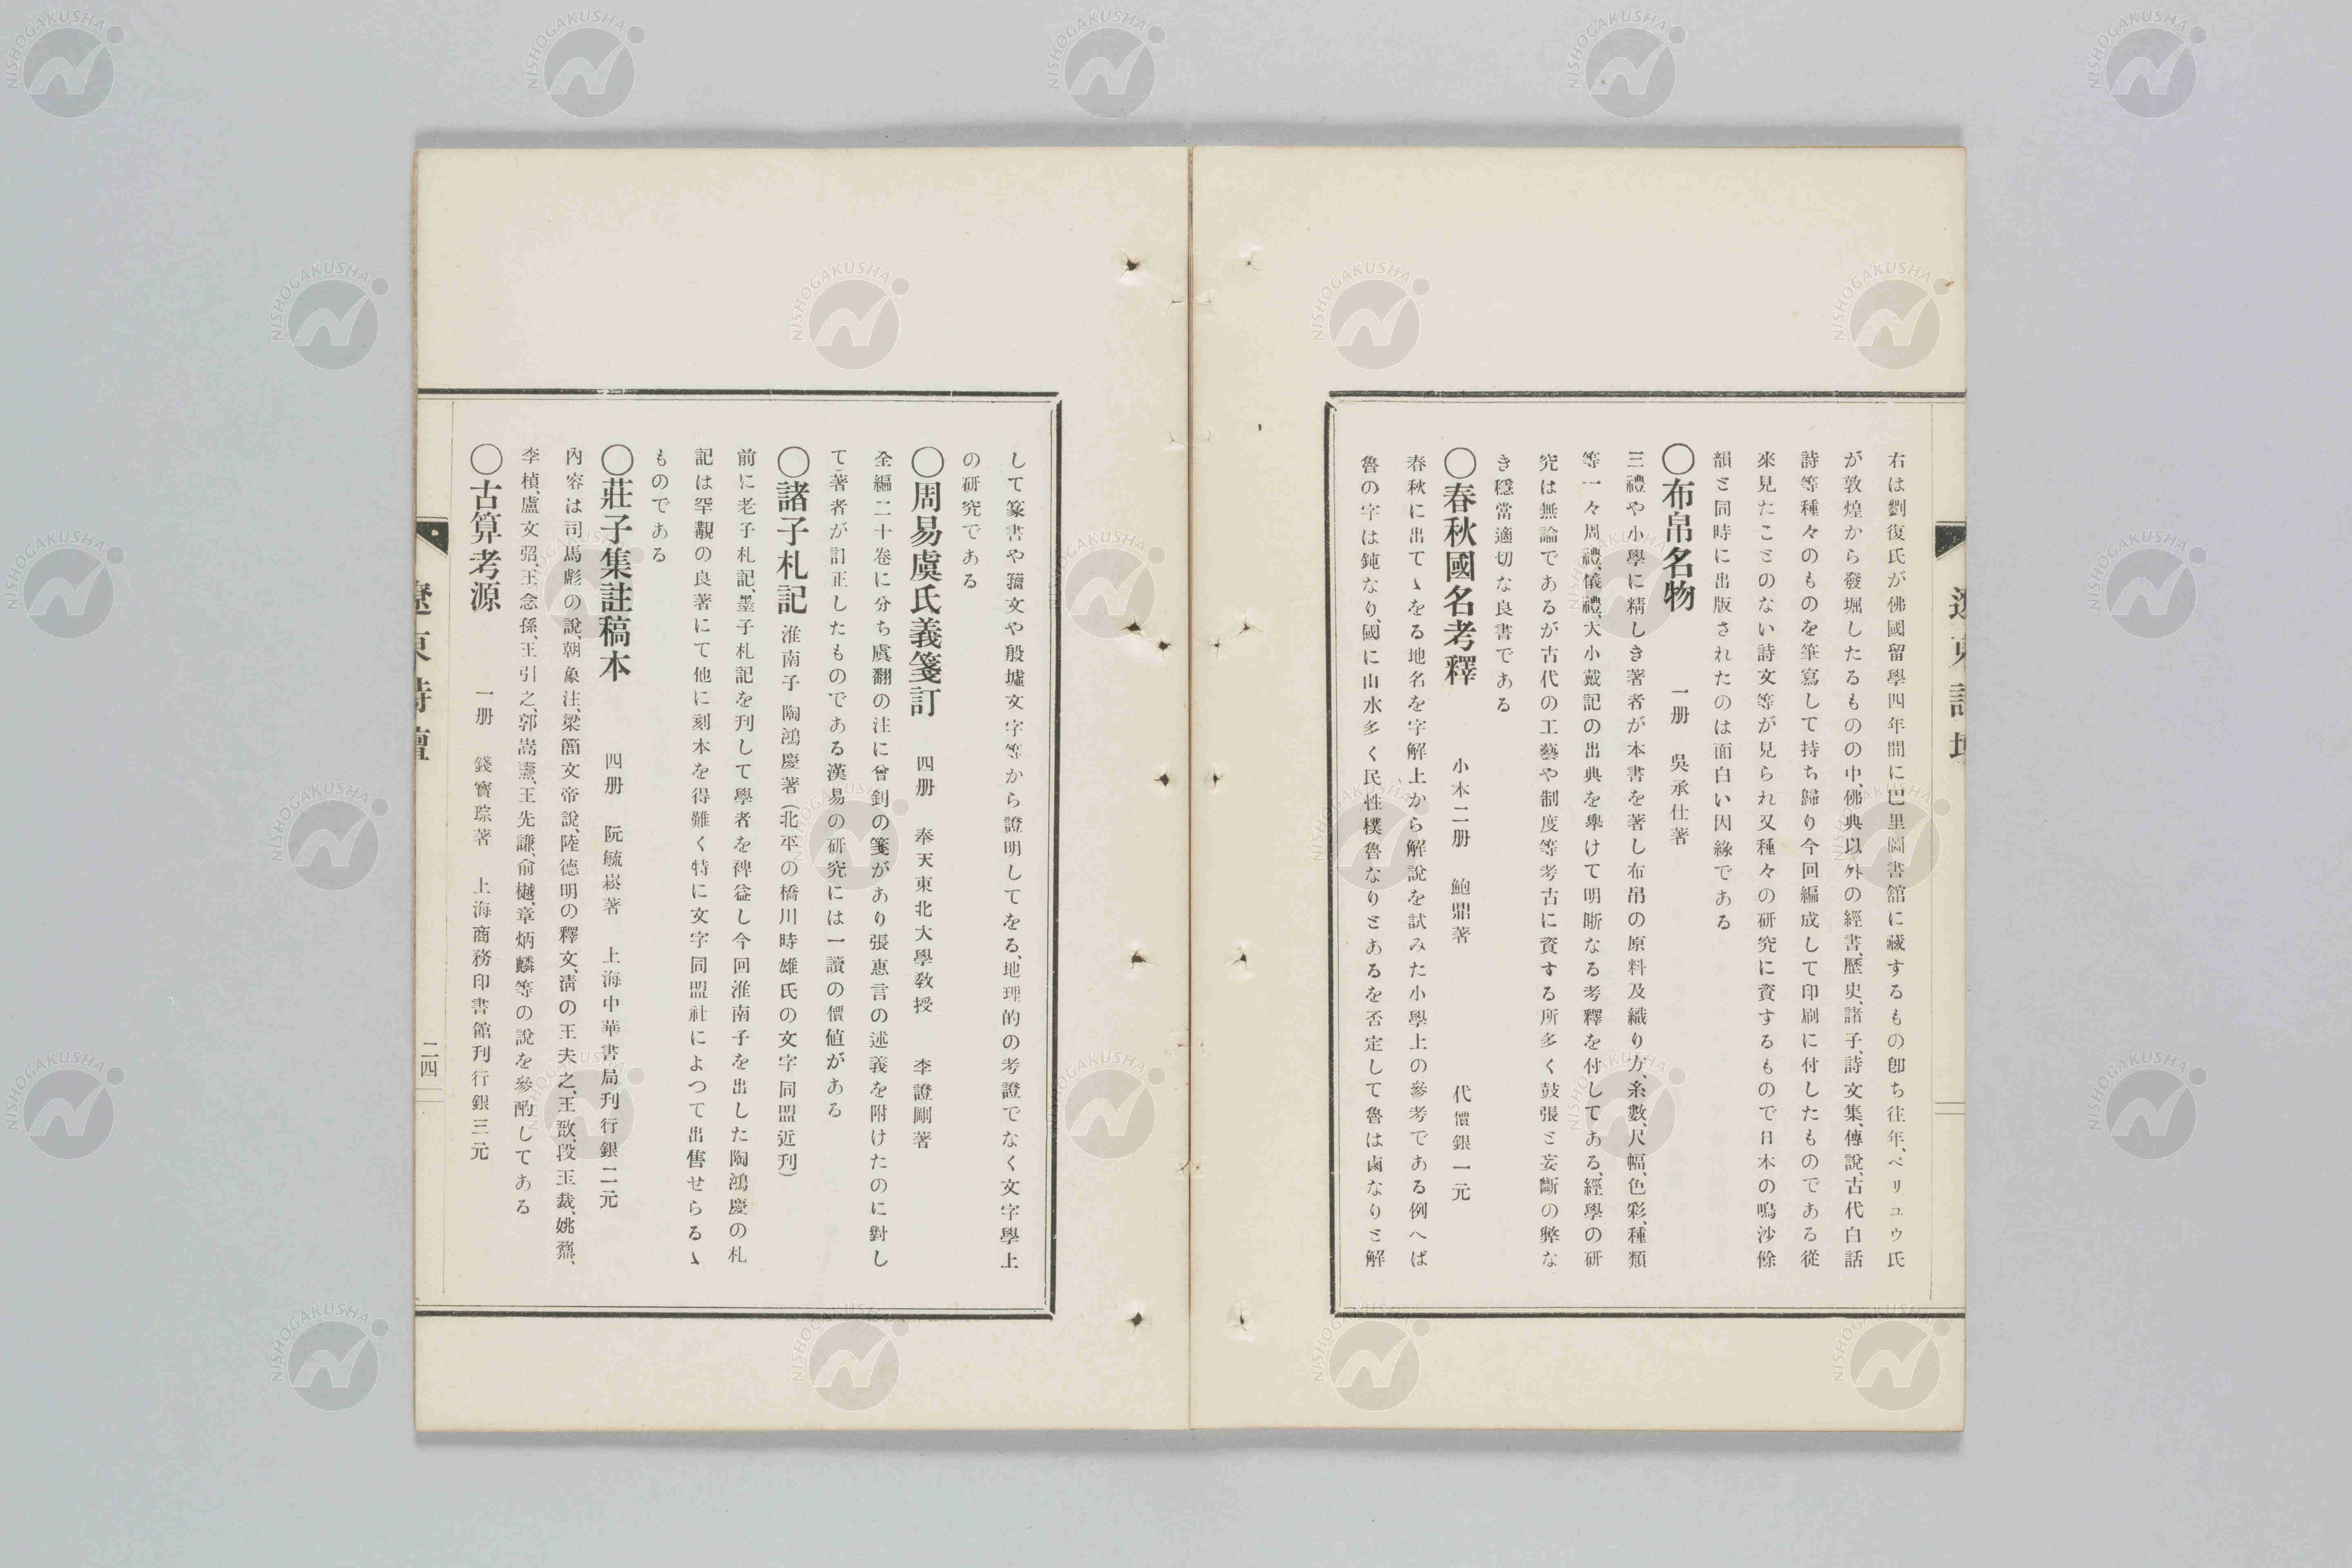 右は劉復氏が佛國留學四年間に巴里圖書舘に藏するもの卽ち往年、ペリュウ氏
が敦煌から發堀したるものの中、佛典以外の經書、歷史、諸子、詩文集、傳說、古代白話
詩等種々のものを筆寫して持ち歸り今回編成して印刷に付したものである從
來見たことのない詩文等が見られ又種々の研究に資するもので日本の鳴沙餘
韻と同時に出版されたのは面白い因緣である
〇布帛名物 一册 吳承仕著
三禮や小學に精しき著者が本書を著し布帛の原料及織り方、糸數、尺幅、色彩、種類
等一々周禮、儀禮、大小戴記の出典を擧けて明晣なる考釋を付してある、經學の研
究は無論であるが古代の工藝や制度等考古に資する所多く鼓張と妄斷の弊な
き穩當適切な良書である
〇春秋國名考釋 小本二册 鮑鼎著 代價銀一元
春秋に出てゝをる地名を字解上から解說を試みた小學上の參考である例へば
魯の字は鈍なり、國に山水多く民性樸魯なりとあるを否定して魯は鹵なりと解
して篆書や籒文や殷墟文字等から證明してをる、地理的の考證でなく文字學上
の研究である
〇周易虞氏義箋訂 四册 奉天東北大學敎授 李證剛著
全編二十卷に分ち虞翻の注に曾釗の箋があり張惠言の述義を附けたのに對し
て著者が訂正したものである漢易の研究には一讀の價値がある
〇諸子札記 淮南子 陶鴻慶著(北平の橋川時雄氏の文字同盟近刋)
前に老子札記、墨子札記を刋して學者を裨益し今回淮南子を出した陶鴻慶の札
記は罕覯の良著にて他に刻本を得難く特に文字同盟社によつて出售せらるゝ
ものである
〇莊子集註稿本 四册 阮毓崧著 上海中華書局刋行銀二元
內容は司馬彪の說、朝象注、梁簡文帝說、陸德明の釋文、淸の王夫之、王敔、段玉裁、姚鼐、
李楨、盧文弨、王念孫、王引之、郭嵩燾、王先謙、俞樾、章炳麟等の說を參酌してある
〇古算考源 一册 錢寶琮著 上海商務印書館刋行銀三元
遼東詩壇
二四
NISHOGAKUSHA